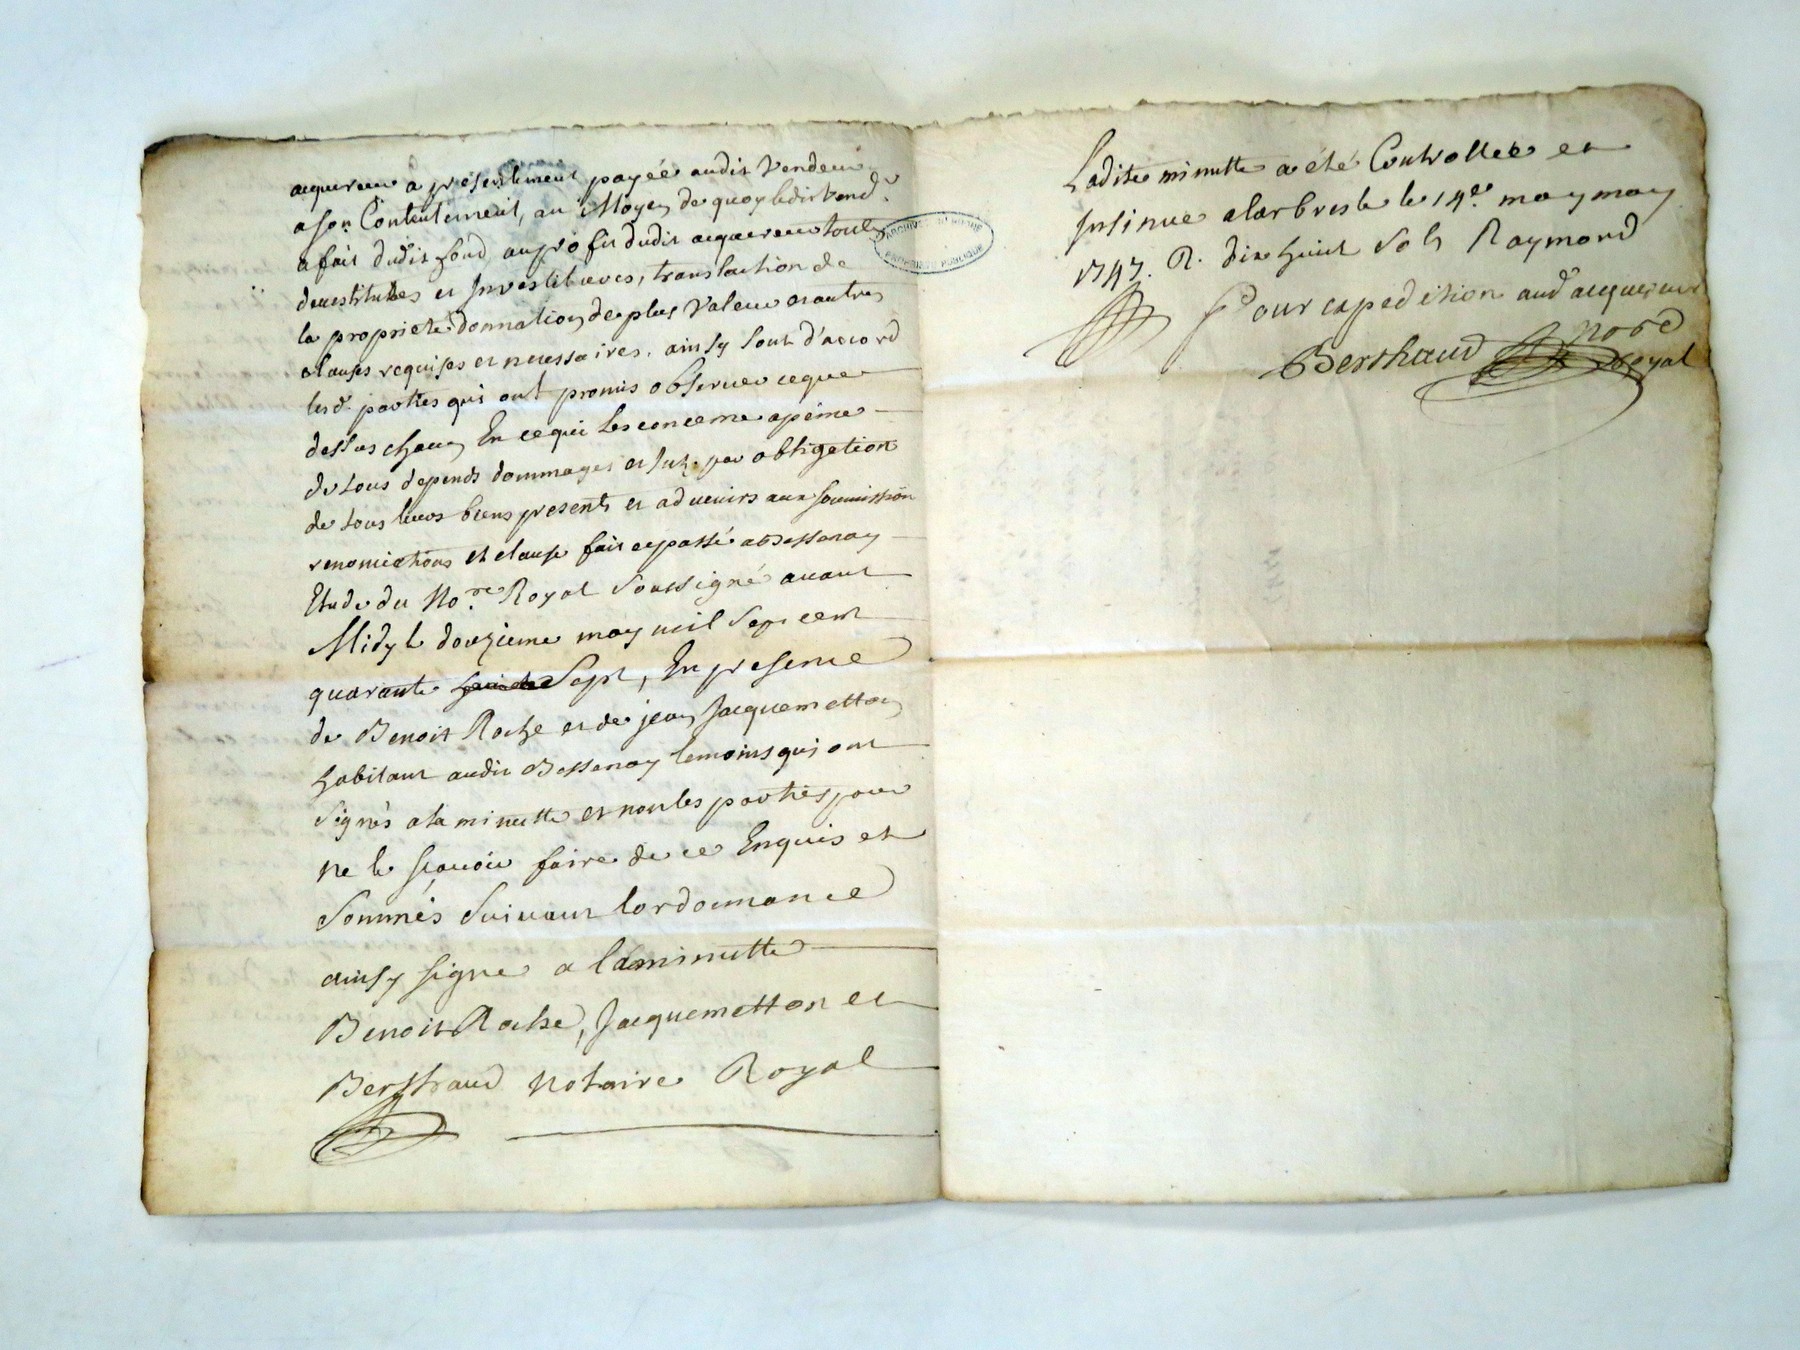 acquereur a presentement payée audit Vendeur
a son Contentement, au Moyen de quoy ledit Vendr
a fait dudit fond, au profit dudit acquereur toutes
devestitures et Investitures, translation de
la proprieté donnation de plus Valeur et autres
clauses requises et necessaires. ainsy sont d'accord
lesd. parties qui ont promis observer ce que
dessus chacun En ce qui les concerne apeine
de tous depends dommages et Int. par obligation
de tous leurs biens presents et advenirs aux soumission
renonciations et clause fait et passé a Bessenay
Etude du No.re Royal soussigné avant
Midy le douzieme may mil sept cent
quarante sept, En presence
de Benoit Roche et de jean Jacquemetton
habitant audit Bessenay temoins qui ont
signés a la minutte et non les parties pour
ne le sçavoir faire de ce Enquis et
sommés suivant lordonnance
ainsy signe a la minutte
Benoit Roche, Jacquemetton et
Berthaud Notaire Royal
ARCHIVES DU RHONE
PROPRIÉTÉ PUBLIQUE
Ladite minutte a été Controllée et
Insinue a larbresle le 14e. may may
1747. R. dix huit sols Raymond
Pour expedition aud acquereur
Berthaud Nore
Royal